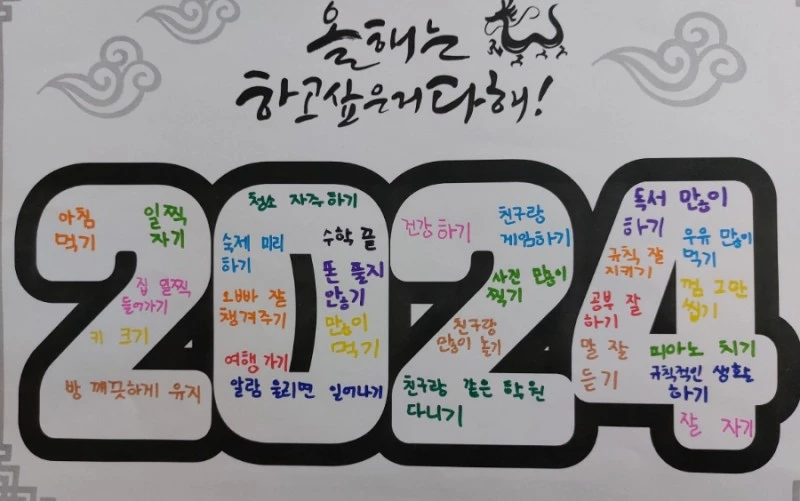 올해는
하고싶은거 다해!
아침
먹기
일찍
자기
집 일찍
들어가기
키 크기
방 깨끗하게 유지
청소 자주 하기
숙제 미리
하기
수학 끝
폰 풀지
안놓기
오빠 잘
챙겨주기
많이
먹기
여행 가기
알람 울리면 일어나기
건강 하기
친구랑
게임하기
사진 많이
찍기
친구랑
많이 놀기
친구랑 같은 학원
다니기
독서 많이
하기
우유 많이
먹기
규칙 잘
지키기
껌 그만
씹기
공부 잘
하기
말 잘
듣기
피아노 치기
규칙적인 생활
하기
잘 자기